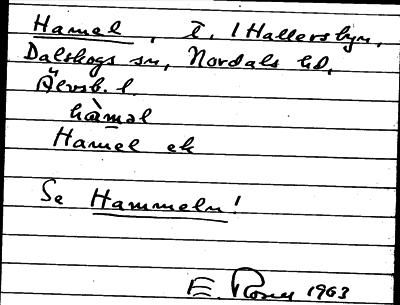 Hamel, t. i Hallersbyn,
Dalskogs sn, Nordals hd,
Älvsb. l.
hàməl
Hamel ek
Se Hammeln!
E. Rosell 1963